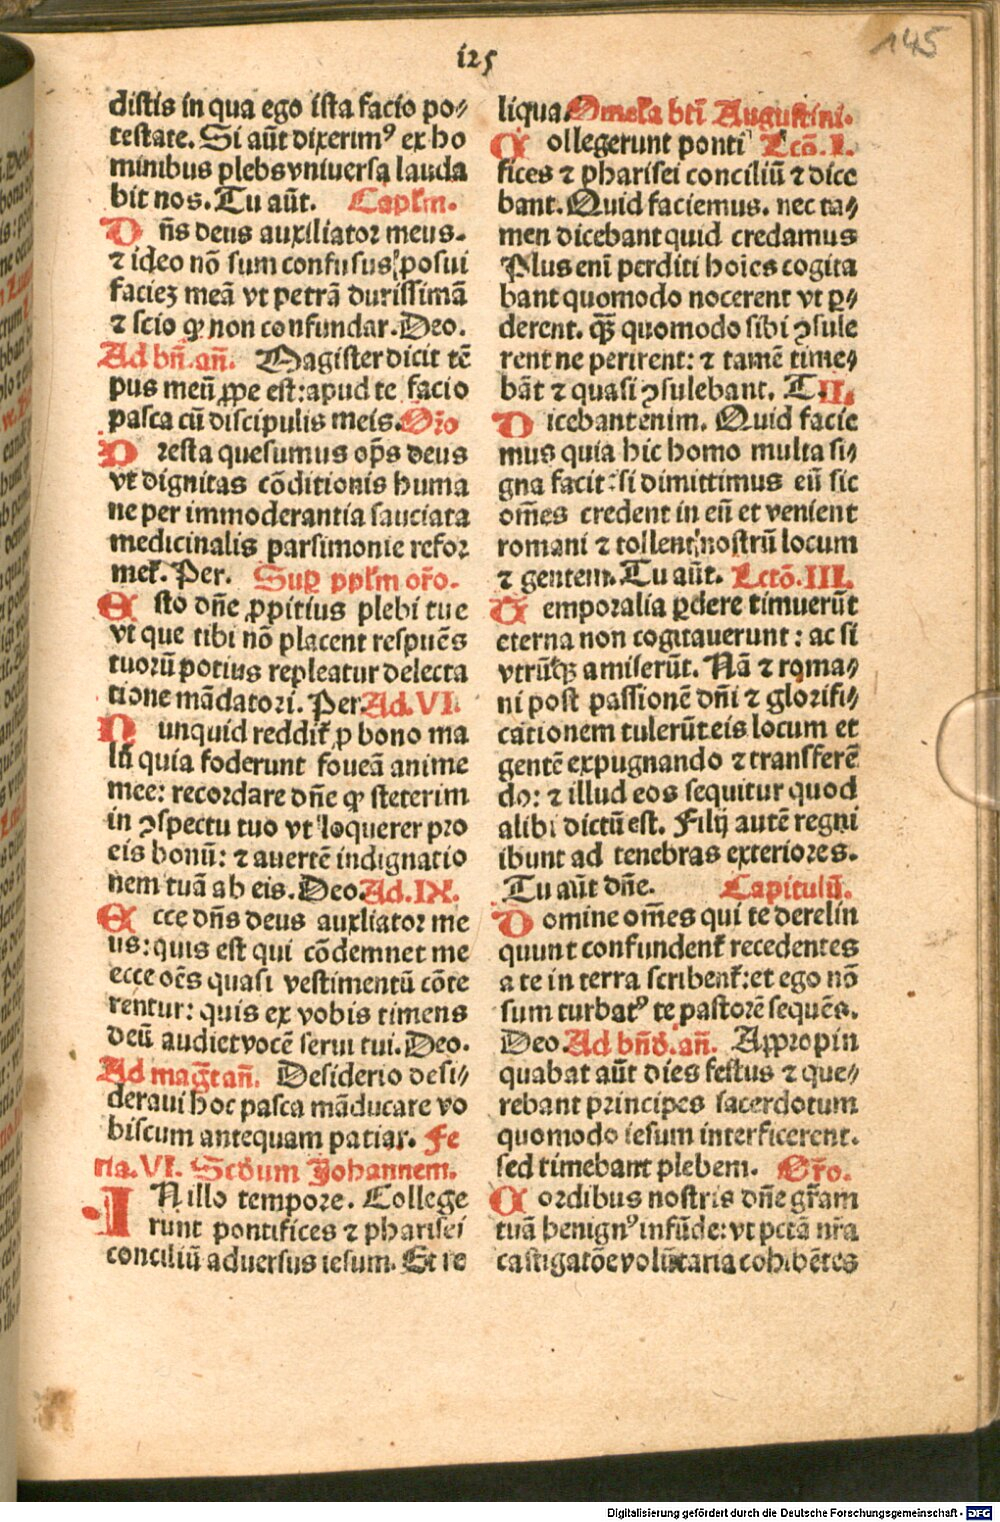 125
145
distis in qua ego ista facio po⸗
testate. Si aūt dixerimꝰ ex ho
minibus plebs vniuersa lauda
bit nos. Tu aūt. Caplm.
Dn̄s deus auxiliator meus.
⁊ ideo nō sum confusus: posui
faciez meā vt petrā durissimā
⁊ scio ꝙ non confundar. Deo.
Ad bn̄. an̄. Magister dicit tē
pus meū ꝓpe est: apud te facio
pasca cū discipulis meis. Or̄o
Presta quesumus op̄s deus
vt dignitas cōditionis huma
ne per immoderantia sauciata
medicinalis parsimonie refor
met̄. Per. Suꝑ pplm or̄o.
Esto dn̄e ꝓpitius plebi tue
vt que tibi nō placent respuēs
tuorū potius repleatur delecta
tione mādatori. Per. Ad. VI.
Nunquid reddit̄ ꝓ bono ma
lū quia foderunt foueā anime
mee: recordare dn̄e ꝙ steterim
in ꝯspectu tuo vt loquerer pro
eis bonū: ⁊ auertē indignatio
nem tuā ab eis. Deo. Ad. IX.
Ecce dn̄s deus auxliator me
us: quis est qui cōdemnet me
ecce oēs quasi vestimentū cōte
rentur: quis ex vobis timens
deū audiet vocē serui tui. Deo.
Ad magt̄ an̄. Desiderio desi⸗
deraui hoc pasca māducare vo
biscum antequam patiar. Fe
ria. VI. Scd̄um Johannem.
IN illo tempore. College
runt pontifices ⁊ pharisei
conciliū aduersus iesum. Et re
liqua. Omelia bt̄i Augustini.
Collegerunt ponti Lcō. I.
fices ⁊ pharisei conciliū ⁊ dice
bant. Quid faciemus. nec ta⸗
men dicebant quid credamus
Plus eni perditi hoies cogita
bant quomodo nocerent vt ꝑ⸗
derent. ꝙ̄ quomodo sibi ꝯsule
rent ne perirent: ⁊ tamē time⸗
bāt ⁊ quasi ꝯsulebant. T. II.
Dicebant enim. Quid facie
mus quia hic homo multa si⸗
gna facit: si dimittimus eū sic
om̄es credent in eū et venient
romani ⁊ tollent nostrū locum
⁊ gentem. Tu aūt. Lctō. III.
Temporalia ꝑdere timuerūt
eterna non cogitauerunt: ac si
vtrūqꝫ amiserūt. Nā ⁊ roma⸗
ni post passionē dn̄i ⁊ glorifi⸗
cationem tulerūt eis locum et
gentē expugnando ⁊ transferē
do: ⁊ illud eos sequitur quod
alibi dictū est. Filij autē regni
ibunt ad tenebras exteriores.
Tu aūt dn̄e. Capitulū.
Domine om̄es qui te derelin
quunt confundent̄ recedentes
a te in terra scribent̄: et ego nō
sum turbatꝰ te pastorē sequēs.
Deo. Ad bn̄d. an̄. Appropin
quabat aūt dies festus ⁊ que⸗
rebant principes sacerdotum
quomodo iesum interficerent.
sed timebant plebem. Or̄o.
Cordibus nostris dn̄e gr̄am
tuā benignꝰ infūde: vt pctā nr̄a
castigatōe volūtaria cohibētes
Digitalisierung gefördert durch die Deutsche Forschungsgemeinschaft - DFG